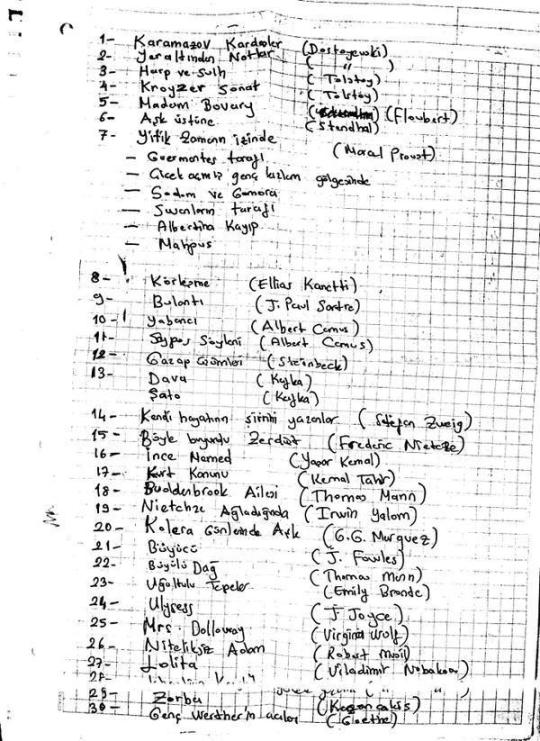 1- Karamazov Kardeşler (Dostoyewski)
2- Yeraltından Notlar ( " )
3- Harp ve Sulh ( Tolstoy )
4- Kroyzer Sonat ( Tolstoy )
5- Madam Bovary (Floubert)
6- Aşk üstüne (Stendhal)
7- Yitik Zamanın izinde (Marcel Proust)
— Guermantes tarafı
— Çiçek açmış genç kızların gölgesinde
— Sodom ve Gomora
— Swanların tarafı
— Albertina Kayıp
— Mahpus
8- Körleşme (Ellias Kanetti)
9- Bulantı (J. Paul Sartre)
10- Yabancı (Albert Camus)
11- Söyleni (Albert Camus)
12- Gazap Üzümleri (Steinbeck)
13- Dava (Kafka)
Şato (Kafka)
14- Kendi hayatının şiirini yazanlar (Stefan Zweig)
15- Böyle buyurdu Zerdüşt (Frederic Nietzce)
16- İnce Memed (Yaşar Kemal)
17- Kurt Kanunu (Kemal Tahir)
18- Buddenbrook Ailesi (Thomas Mann)
19- Nietchze Ağladığında (Irwin Yalom)
20- Kolera Günlerinde Aşk (G.G. Marquez)
21- Büyücü (J. Fowles)
22- Büyülü Dağ (Thomas Mann)
23- Uğultulu Tepeler (Emily Bronde)
24- Ulysess (J Joyce)
25- Mrs. Dolloway (Virgina Wolf)
26- Niteliksiz Adam (Robert Musil)
27- Lolita (Viladimir Nabakov)
29- Zorba (Kazancakis)
30- Genç Werther'in acıları (Goethe)